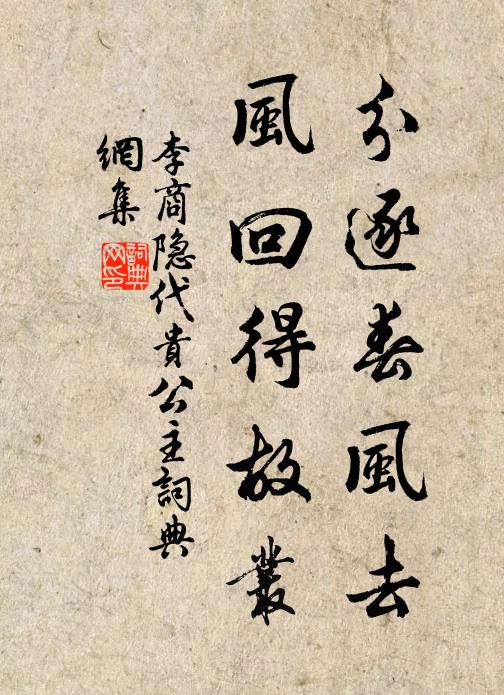 分逐春風去
風回得故叢
李商隐代貴公主詞典
網集
詞典网印